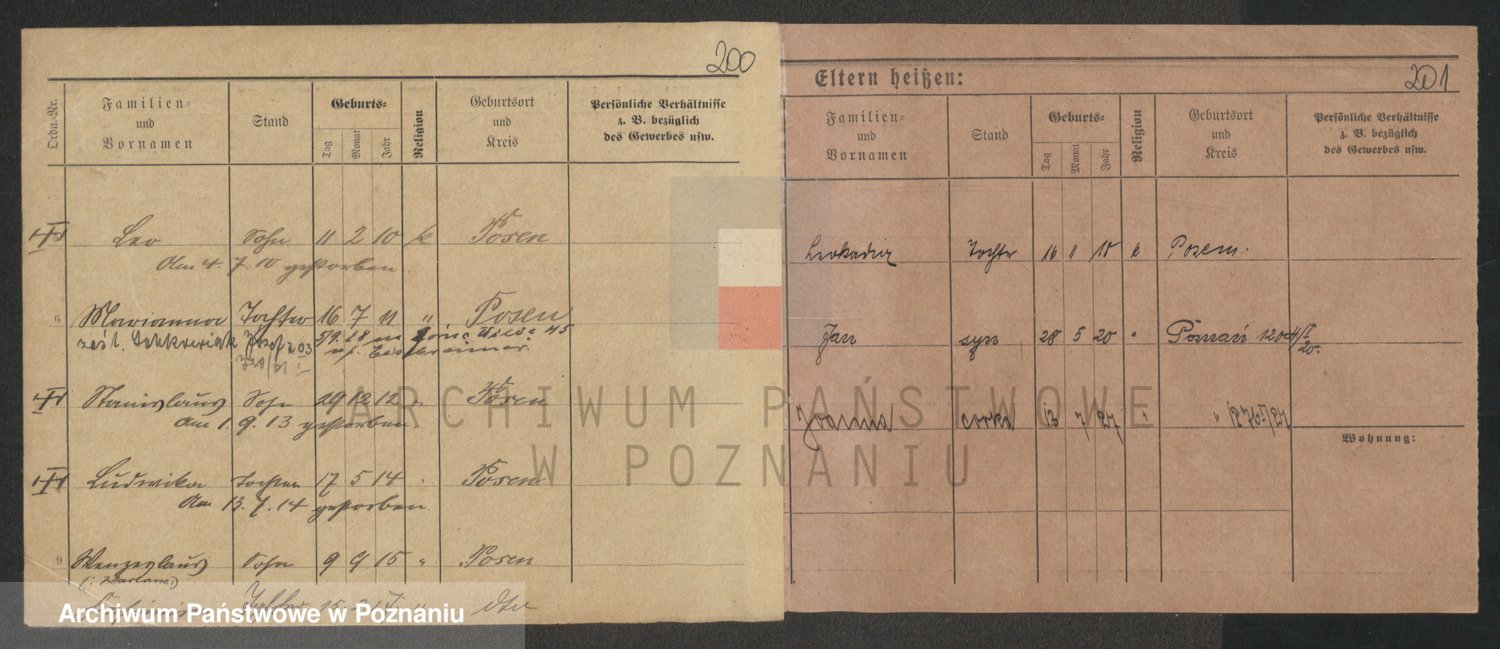 200
Ordn.-Nr.
Familien- und Vornamen
Stand
Geburts-
Tag
Monat
Jahr
Religion
Geburtsort und Kreis
Persönliche Verhältnisse z. B. bezüglich des Gewerbes usw.
Leo Sohn 11 2 10 k Posen
Am 4. 7. 10 gestorben.
6 Marianna Tochter 16 7 11 " Posen
Józef 45
Stanislaus Sohn 29 12 12 " Posen
Am 1. 9. 13 gestorben
Ludwika Tochter 17 5 14 " Posen
Am 13. 7. 14 gestorben.
9 Wenzeslaus Sohn 9 9 15 " Posen
Tochter 15
201
Eltern heißen:
Familien- und Vornamen
Stand
Geburts-
Tag
Monat
Jahr
Religion
Geburtsort und Kreis
Persönliche Verhältnisse z. B. bezüglich des Gewerbes usw.
Leokadia Tochter 16 11 18 k Posen.
Jan syn 28 5 20 " Poznań
Joanna córka 13 7 27 "
Wohnung:
ARCHIWUM PAŃSTWOWE
W POZNANIU
Archiwum Państwowe w Poznaniu